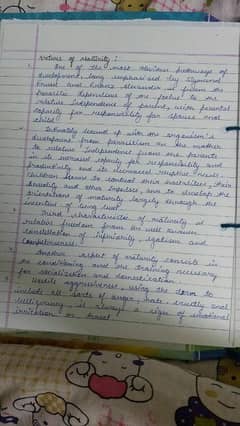 Nature of Maturity :
One of the most obvious pathways of
development, long emphasised by Sigmund
Freud and Franz Alexander is from the
parasitic dependence of the foetus to the
relative independence of parents, with parental
capacity for responsibility for spouse and
child.
Intimately bound up with the organism's
development from parasitism on the mother
to relative independence from the parents
in its increased capacity for responsibility and
productivity and its decreased receptive needs.
Children learn to control their hostilities, their
sexuality and other impulses, and to develop the
orientations of maturity largely through the
incentive of being loved.
Third characteristic of maturity is
relative freedom from the well known
constellation of inferiority, egotism and
competitiveness.
Another aspect of maturity consists in
the conditioning and the training necessary
for socialization and domestication.
Hostile aggressiveness, using the term to
include all sorts of anger, hate, cruelty and
belligerency is always a sign of emotional
irritation or